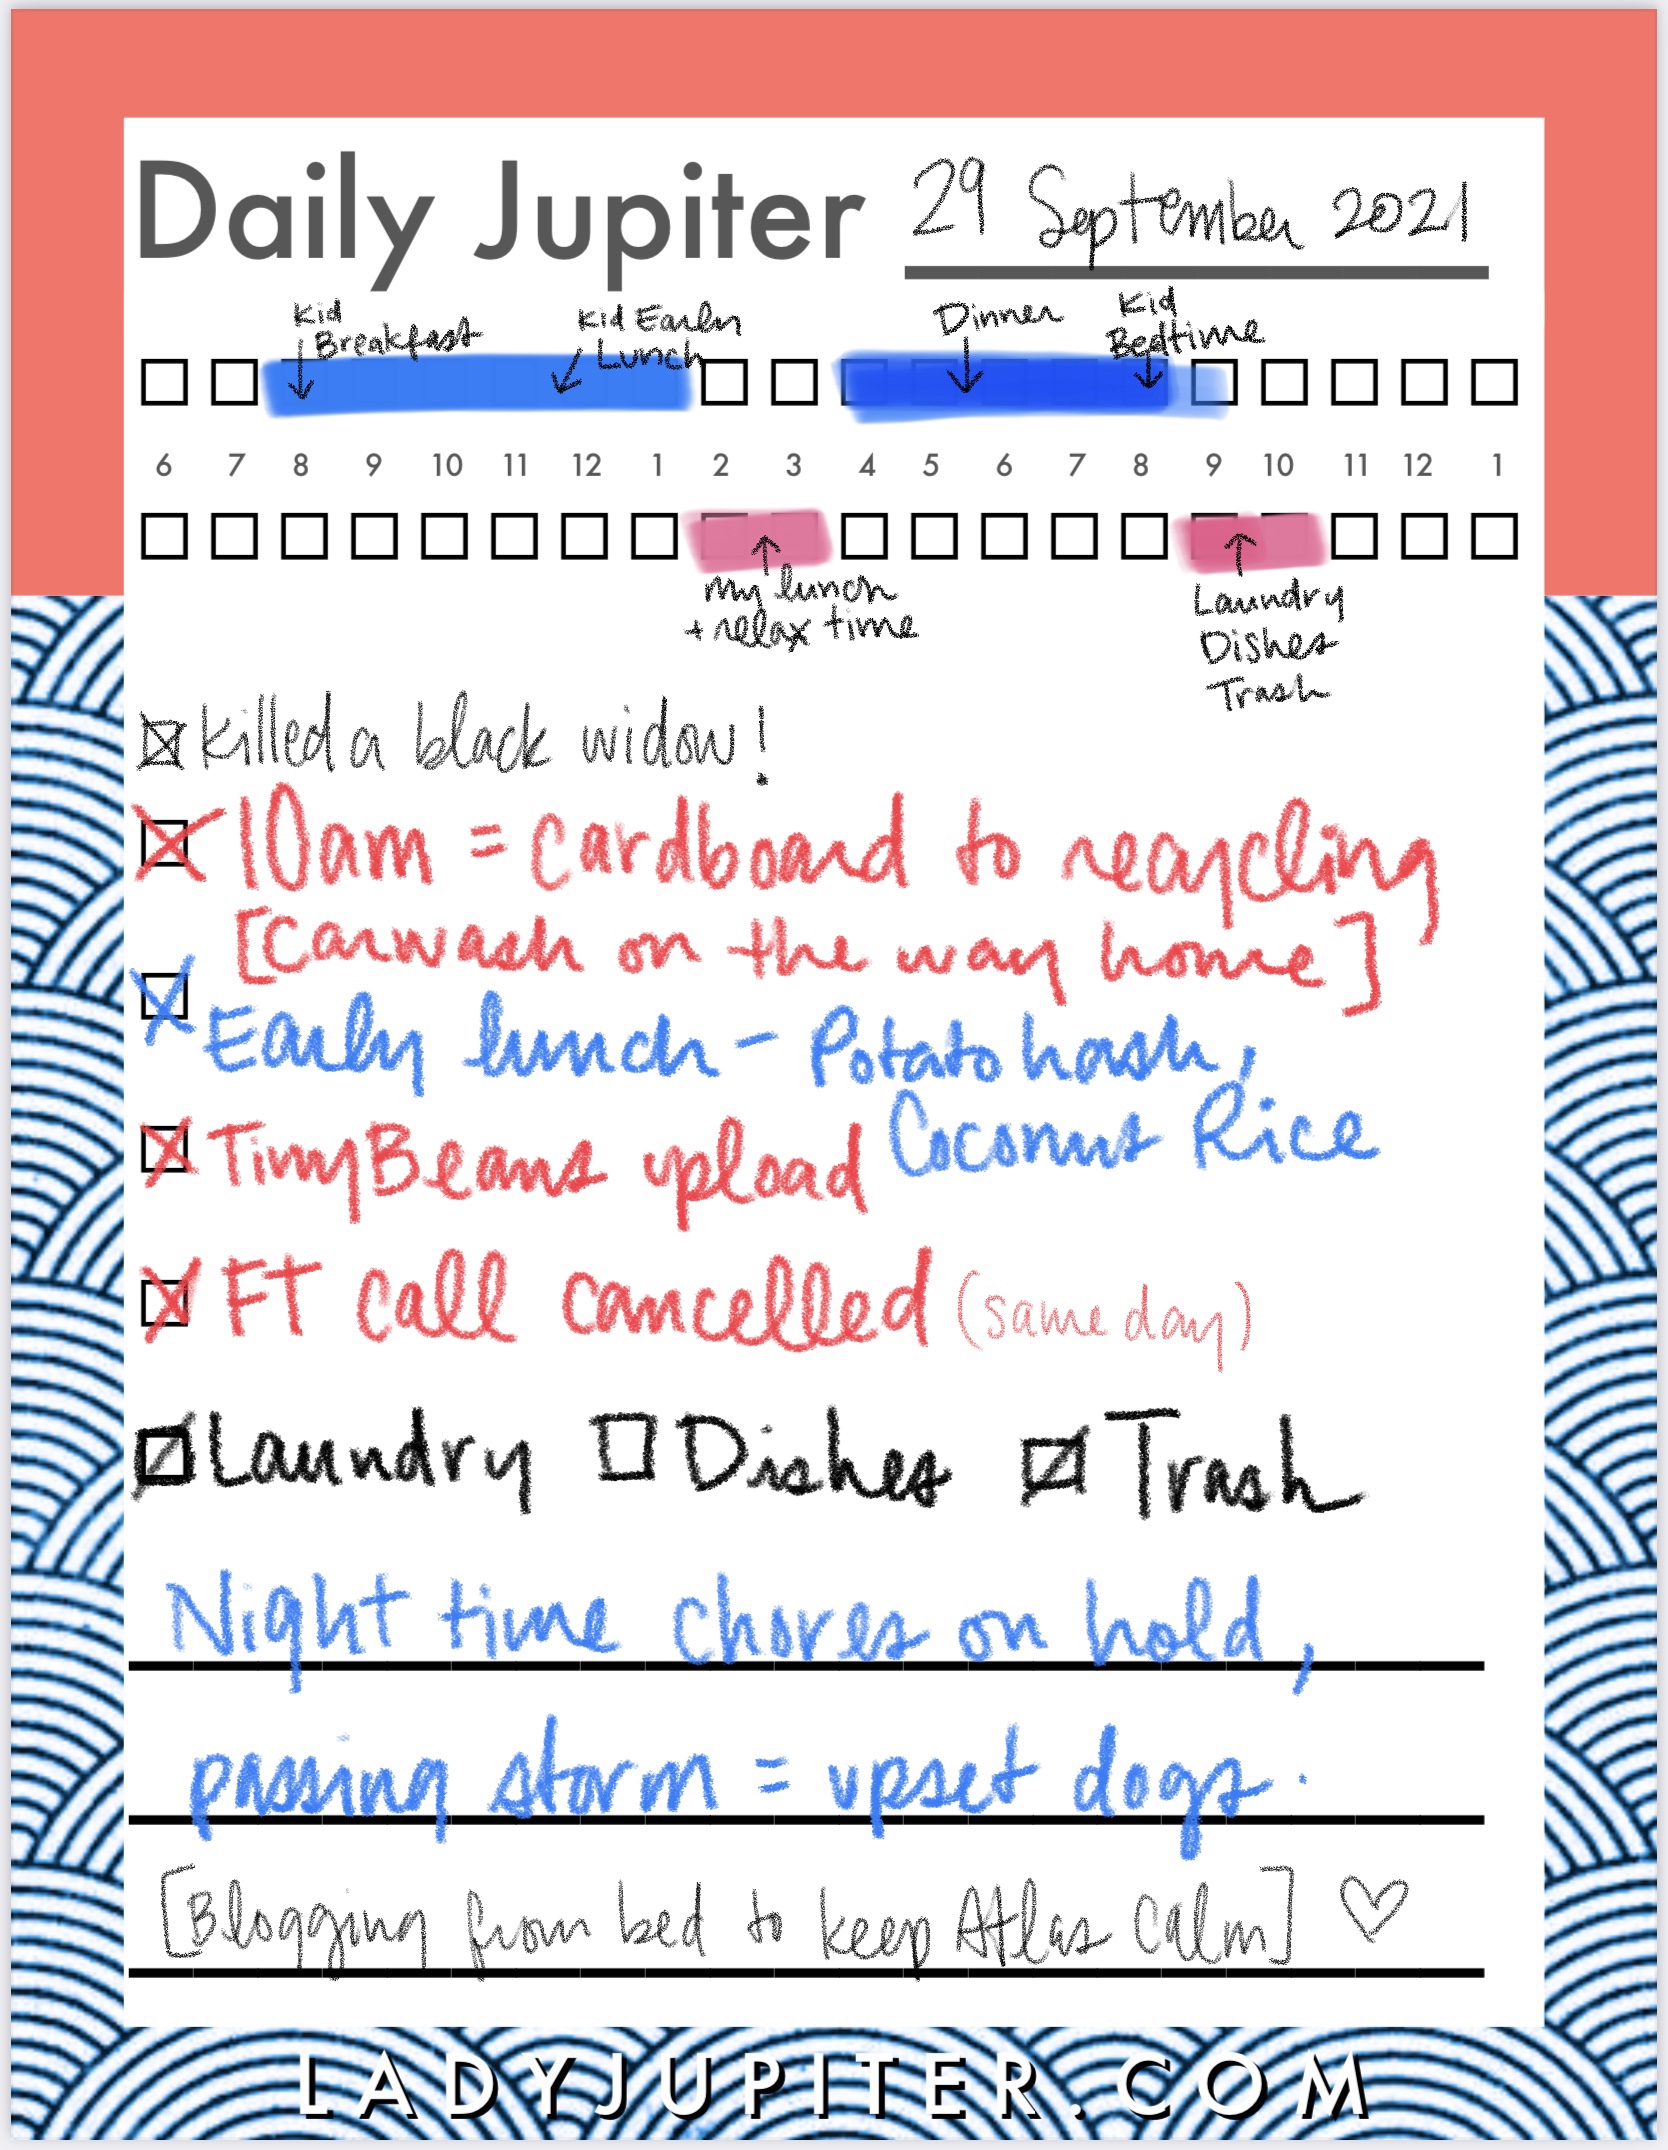 Daily Jupiter 29 September 2021
Kid
Breakfast
Kid Early
Lunch
Dinner
Kid
Bedtime
6 7 8 9 10 11 12 1 2 3 4 5 6 7 8 9 10 11 12 1
my lunch
+ relax time
Laundry
Dishes
Trash
Killed a black widow!
10am = cardboard to recycling
[Carwash on the way home]
Early lunch - Potato hash,
Coconut Rice
TinyBeans upload
FT call cancelled (same day)
Laundry Dishes Trash
Night time chores on hold,
passing storm = upset dogs.
[Blogging from bed to keep Atlas Calm] ♡
LADYJUPITER.COM